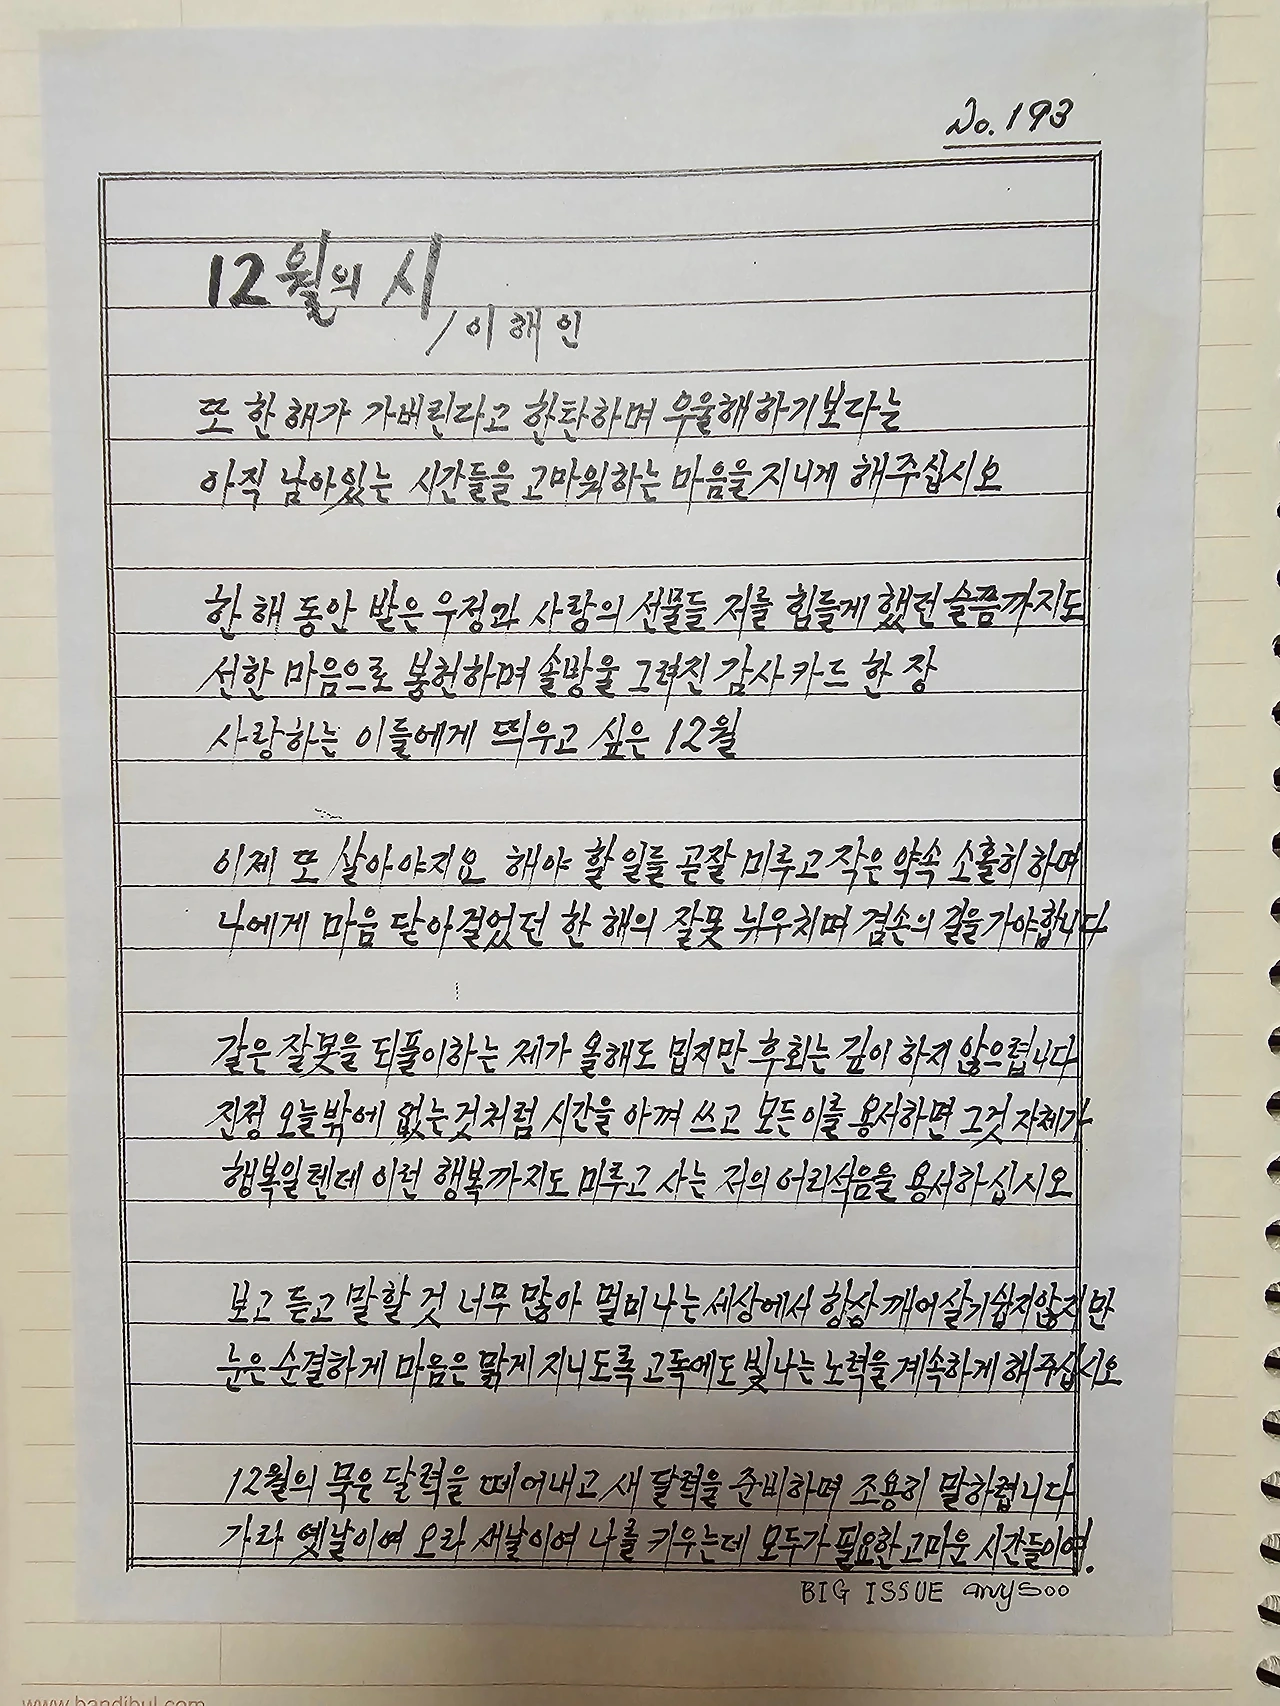 No. 193
12월의 시
/이해인
또 한 해가 가버린다고 한탄하며 우울해하기보다는
아직 남아있는 시간들을 고마워하는 마음을 지니게 해주십시오
한 해 동안 받은 우정과 사랑의 선물들 저를 힘들게 했던 슬픔까지도
선한 마음으로 봉헌하며 솔방울 그려진 감사카드 한 장
사랑하는 이들에게 띄우고 싶은 12월
이제 또 살아야지요 해야 할 일들 곧잘 미루고 작은 약속 소홀히 하며
나에게 마음 닫아 걸었던 한 해의 잘못 뉘우치며 겸손의 길을 가야합니다
같은 잘못을 되풀이하는 제가 올해도 밉지만 후회는 깊이 하지 않으렵니다
진정 오늘밖에 없는것처럼 시간을 아껴 쓰고 모든이를 용서하면 그것 자체가
행복일텐데 이런 행복까지도 미루고 사는 저의 어리석음을 용서하십시오
보고 듣고 말할 것 너무 많아 멀미나는 세상에서 항상 깨어살기 쉽지않지만
눈은 순결하게 마음은 맑게 지니도록 고독에도 빛나는 노력을 계속하게 해주십시오
12월의 묵은 달력을 떼어내고 새 달력을 준비하며 조용히 말하렵니다
가라 옛날이여 오라 새날이여 나를 키우는데 모두가 필요한 고마운 시간들이여.
BIG ISSUE anysoo
www.bandibul.com